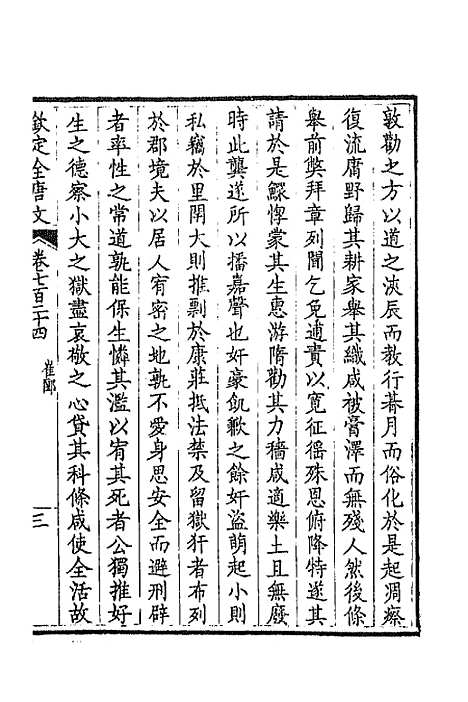 敦勸之方以道之浹辰而教行朞月而俗化於是起凋瘵
復流庸野歸其耕家舉其織咸被膏澤而無殘人然後條
舉前弊拜章列聞乞免逋責以寬征徭殊恩俯降特遂其
請於是鰥惸蒙其生惠游隋勸其力穡咸適樂土且無廢
時此龔遂所以播嘉聲也奸豪飢歉之餘奸盜萌起小則
私竊於里閈大則推剽於康莊抵法禁及留獄犴者布列
於郡境夫以居人宥密之地孰不愛身思安全而避刑辟
者率性之常道孰能保生憐其濫以宥其死者公獨推好
生之德察小大之獄盡哀敬之心貸其科條咸使全活故
欽定全唐文
卷七百二十四
崔郾
三